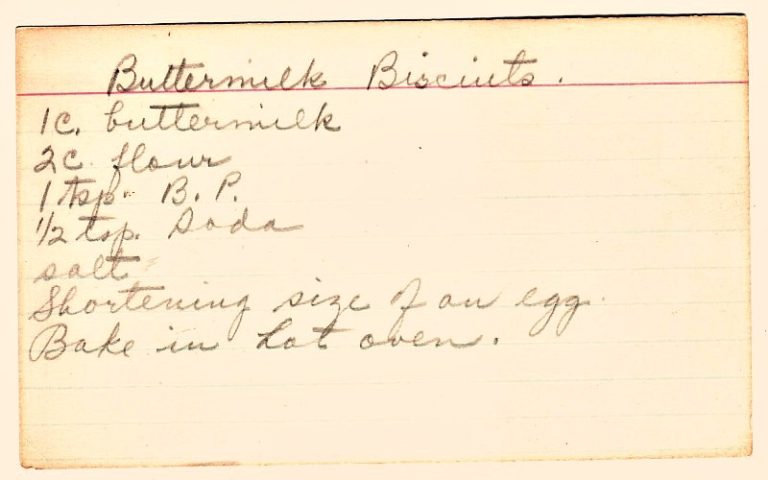 Buttermilk Bisciuts.
1c. buttermilk
2c. flour
1 tsp. B. P.
1/2 tsp. Soda
salt
Shortening size of an egg.
Bake in hot oven.